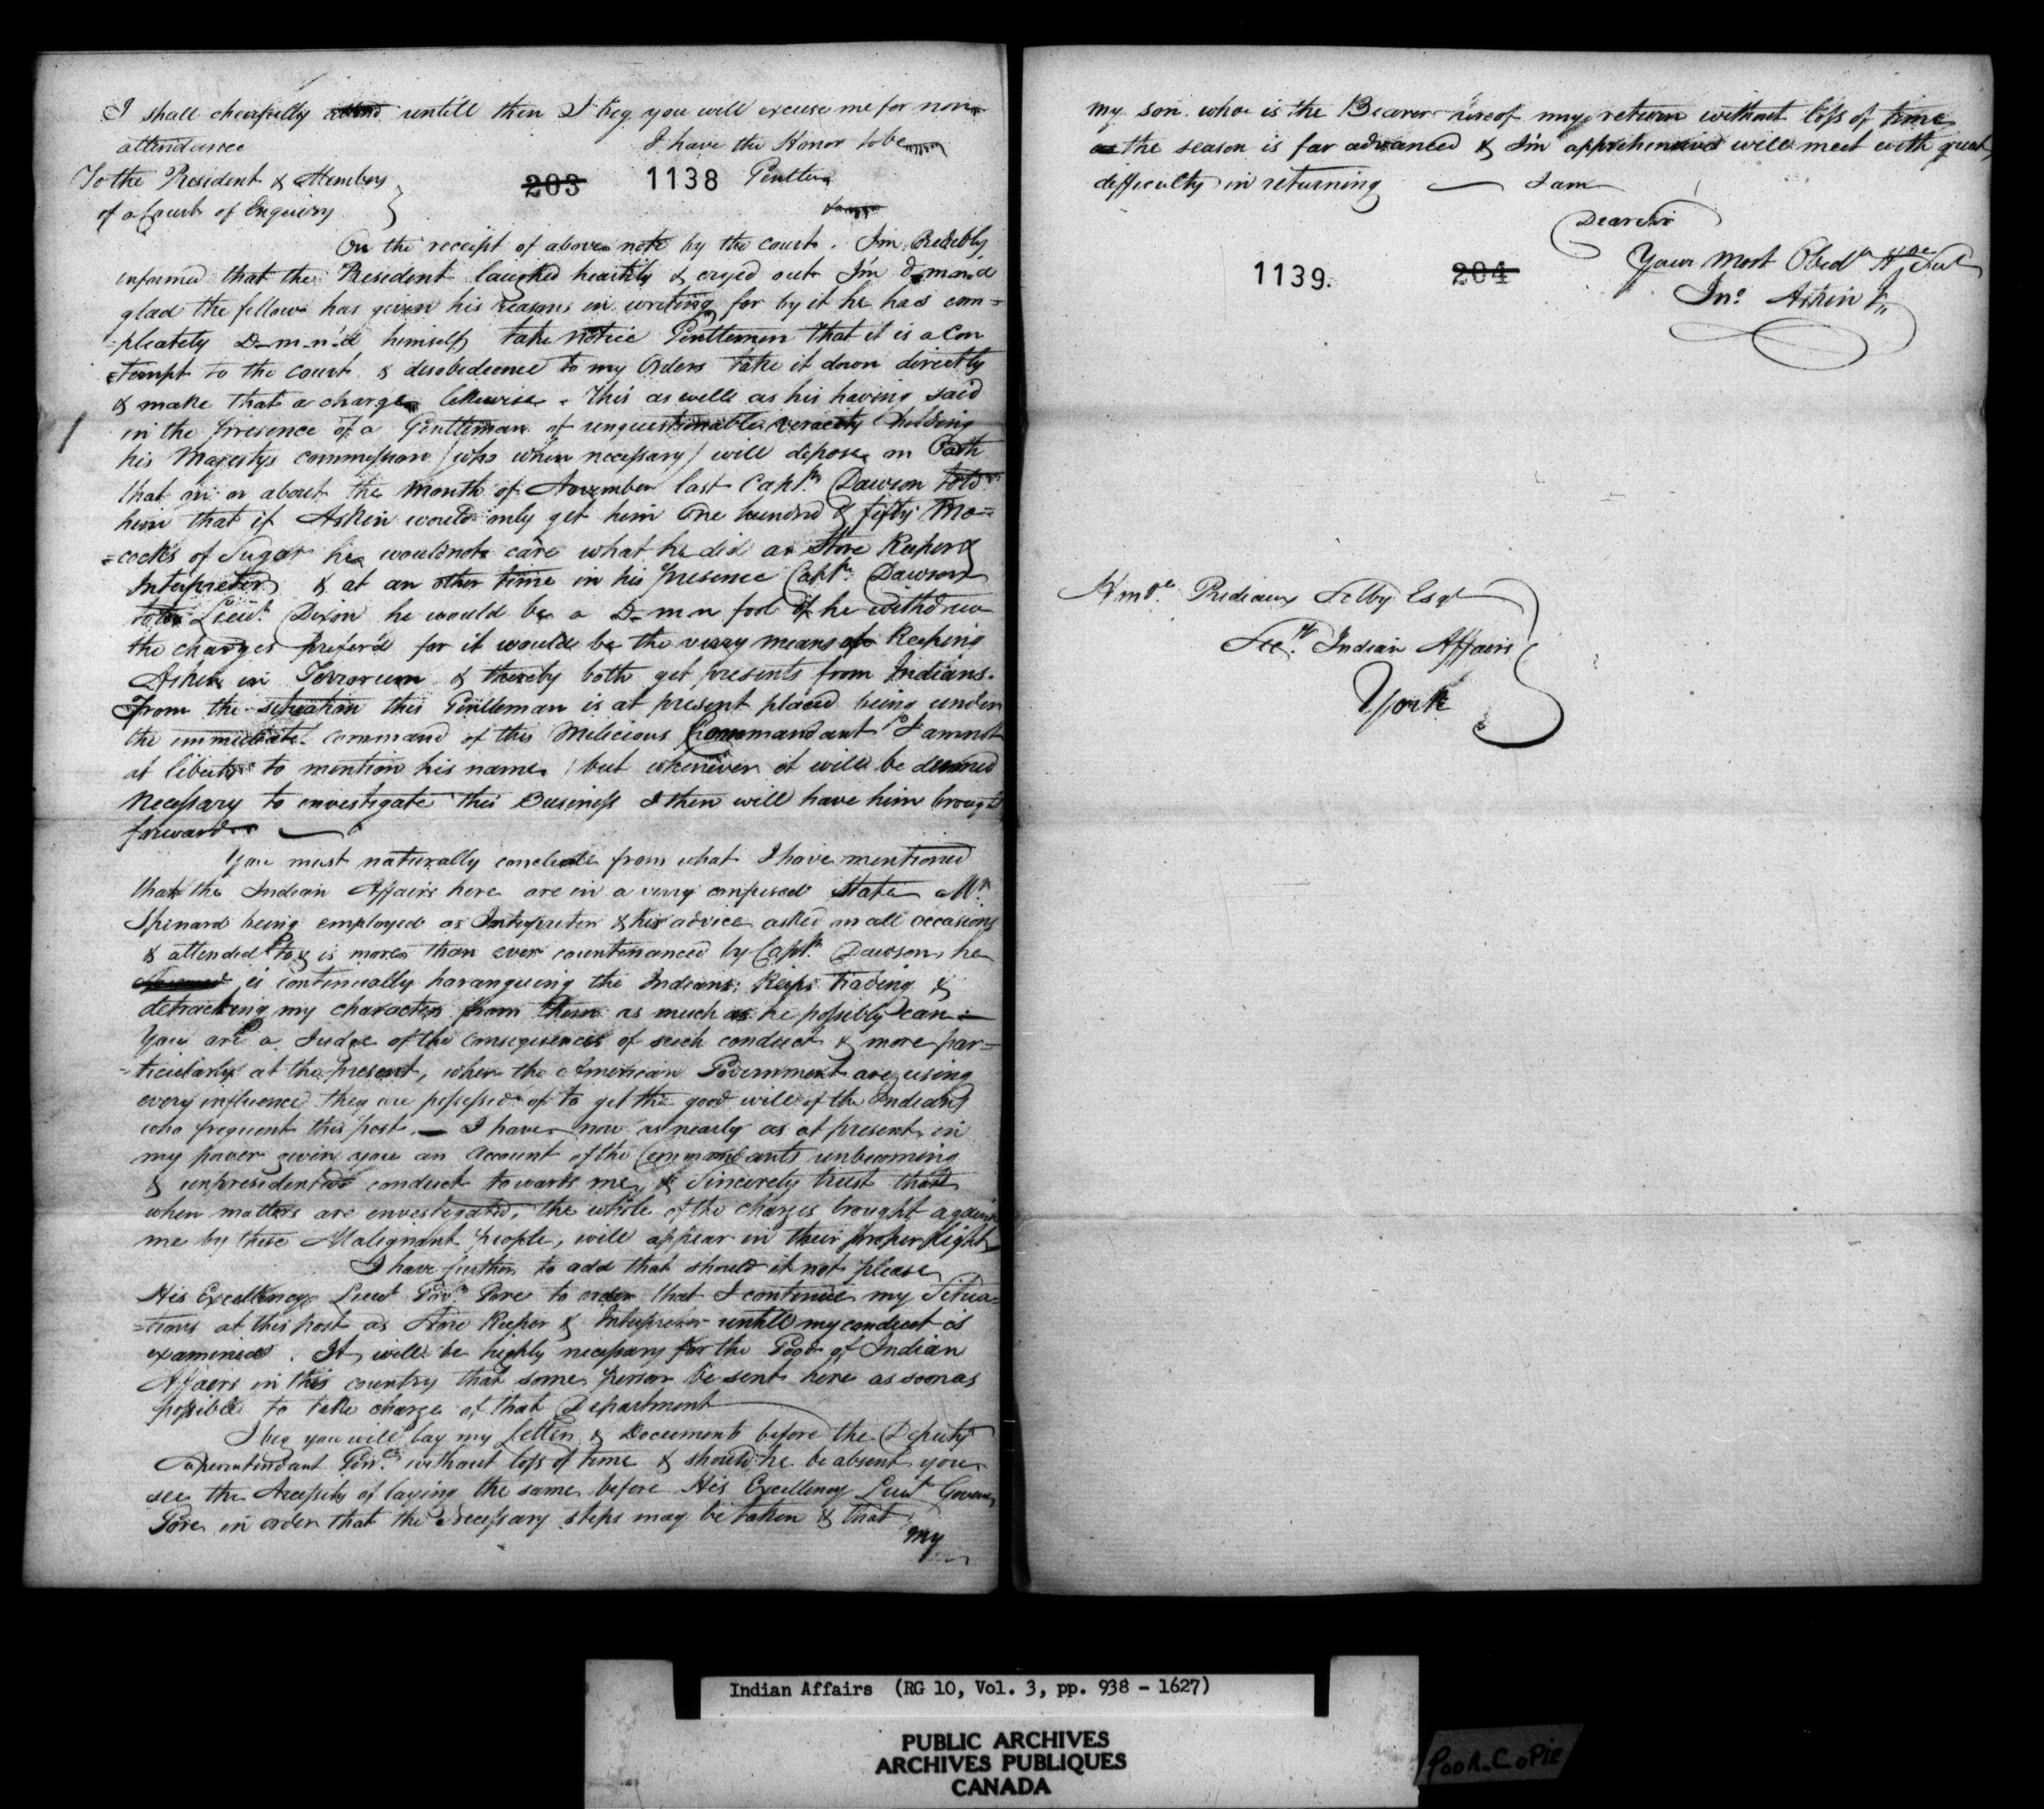 I shall chearfully attend untill then I beg you will excuse me for non
attendance I have the Honor to be
To the President & Members
of a Court of Enquiry
203 1138 Gentlen
On the receipt of above note by the court. I'm Credibly
informed that the President laughed heartily & cryed out I'm d-mn'd
glad the fellow has given his reasons in writing for by it he has com=
pleately D-m-n'd himself, take notice Gentlemen that it is a Con
tempt to the court & disobedience to my Orders take it down directly
& make that a charge likewise. This as well as his having said
in the presence of a Gentleman of unquestionable veracity holding
his Majestys commission / who when necessary / will depose on Oath
that in or about the month of November last Capt.n Dawson told
him that if Askin would only get him One hundred & fifty Mo=
=cocks of Sugar he would note care what he did as Store Keeper &
Interpreter & at an other time in his presence Capt.n Dawson
told Lieut. Dixon he would be a D-m-n fool if he withdrew
the charges prefer'd for it would be the very means of Keeping
Askin in Terrorum & thereby both get presents from Indians.
From the situation this Gentleman is at present placed being under
the immediate command of this Milicious Commandant I am not
at liberty to mention his name, but whenever it will be deemed
Necessary to investigate this Business I then will have him brought
forward
You must naturally conclude from what I have mentioned
that the Indian Affairs here are in a very confused State Mr.
Spinard being employed as Interpreter & his advice asked on all occasions
& attended to & is more than ever countenanced by Capt.n Dawson, he
is continually haranguing the Indians: Keeps trading &
detracting my character from them as much as he possibly can.
You are a Judge of the consequences of such conduct & more par=
=ticularly at the present, when the American Government are using
every influence they are possessed of to get the good will of the Indians
who frequent this post. I have now as nearly as at present in
my power given you an account of the Commandants unbecoming
& unpresidented conduct towards me, & Sincerely trust that
when matters are envestigated, the whole of the charges brought against
me by these Malignant people, will appear in their proper light
I have further to add that should it not please
His Excellency Lieut Gov.r Gore to order that I continue my Situa=
=tions at this post as Store Keeper & Interpreter untill my conduct is
examined. It will be highly necessary for the Good of Indian
Affaers in this country that some person be sent here as soon as
possible to take charge of that Department
I beg you will lay my Letter & Documents before the Deputy
Superintendant Gen.l without loss of time & should he be absent you
see the Necessity of laying the same before His Excellency Lieut Governor
Gore in order that the Necessary steps may be taken & that
my
my son who is the Bearer hereof may return without loss of time
as the season is far advanced & I'm apprehensive will meet with great
difficulty in returning I am
Dear Sir
Your Most Obedt Hble Sert
Jno. Askin Jr.
1139. 204
Prideaux Selby Esqr
Secy. Indian Affairs
York
Indian Affairs (RG 10, Vol. 3, pp. 938 - 1627)
PUBLIC ARCHIVES
ARCHIVES PUBLIQUES
CANADA
POOR COPIE